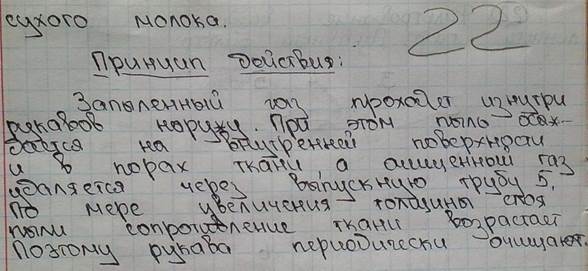 сухого молока.
22
Принцип действия:
Запыленный газ проходит изнутри
рукавов наружу. При этом пыль осаж-
дается на внутренней поверхности
и в порах ткани, а очищенной газ
удаляется через выпускную трубу 5.
По мере увеличения толщины слоя
пыли сопротивление ткани возрастает
Поэтому рукава периодически очищают.